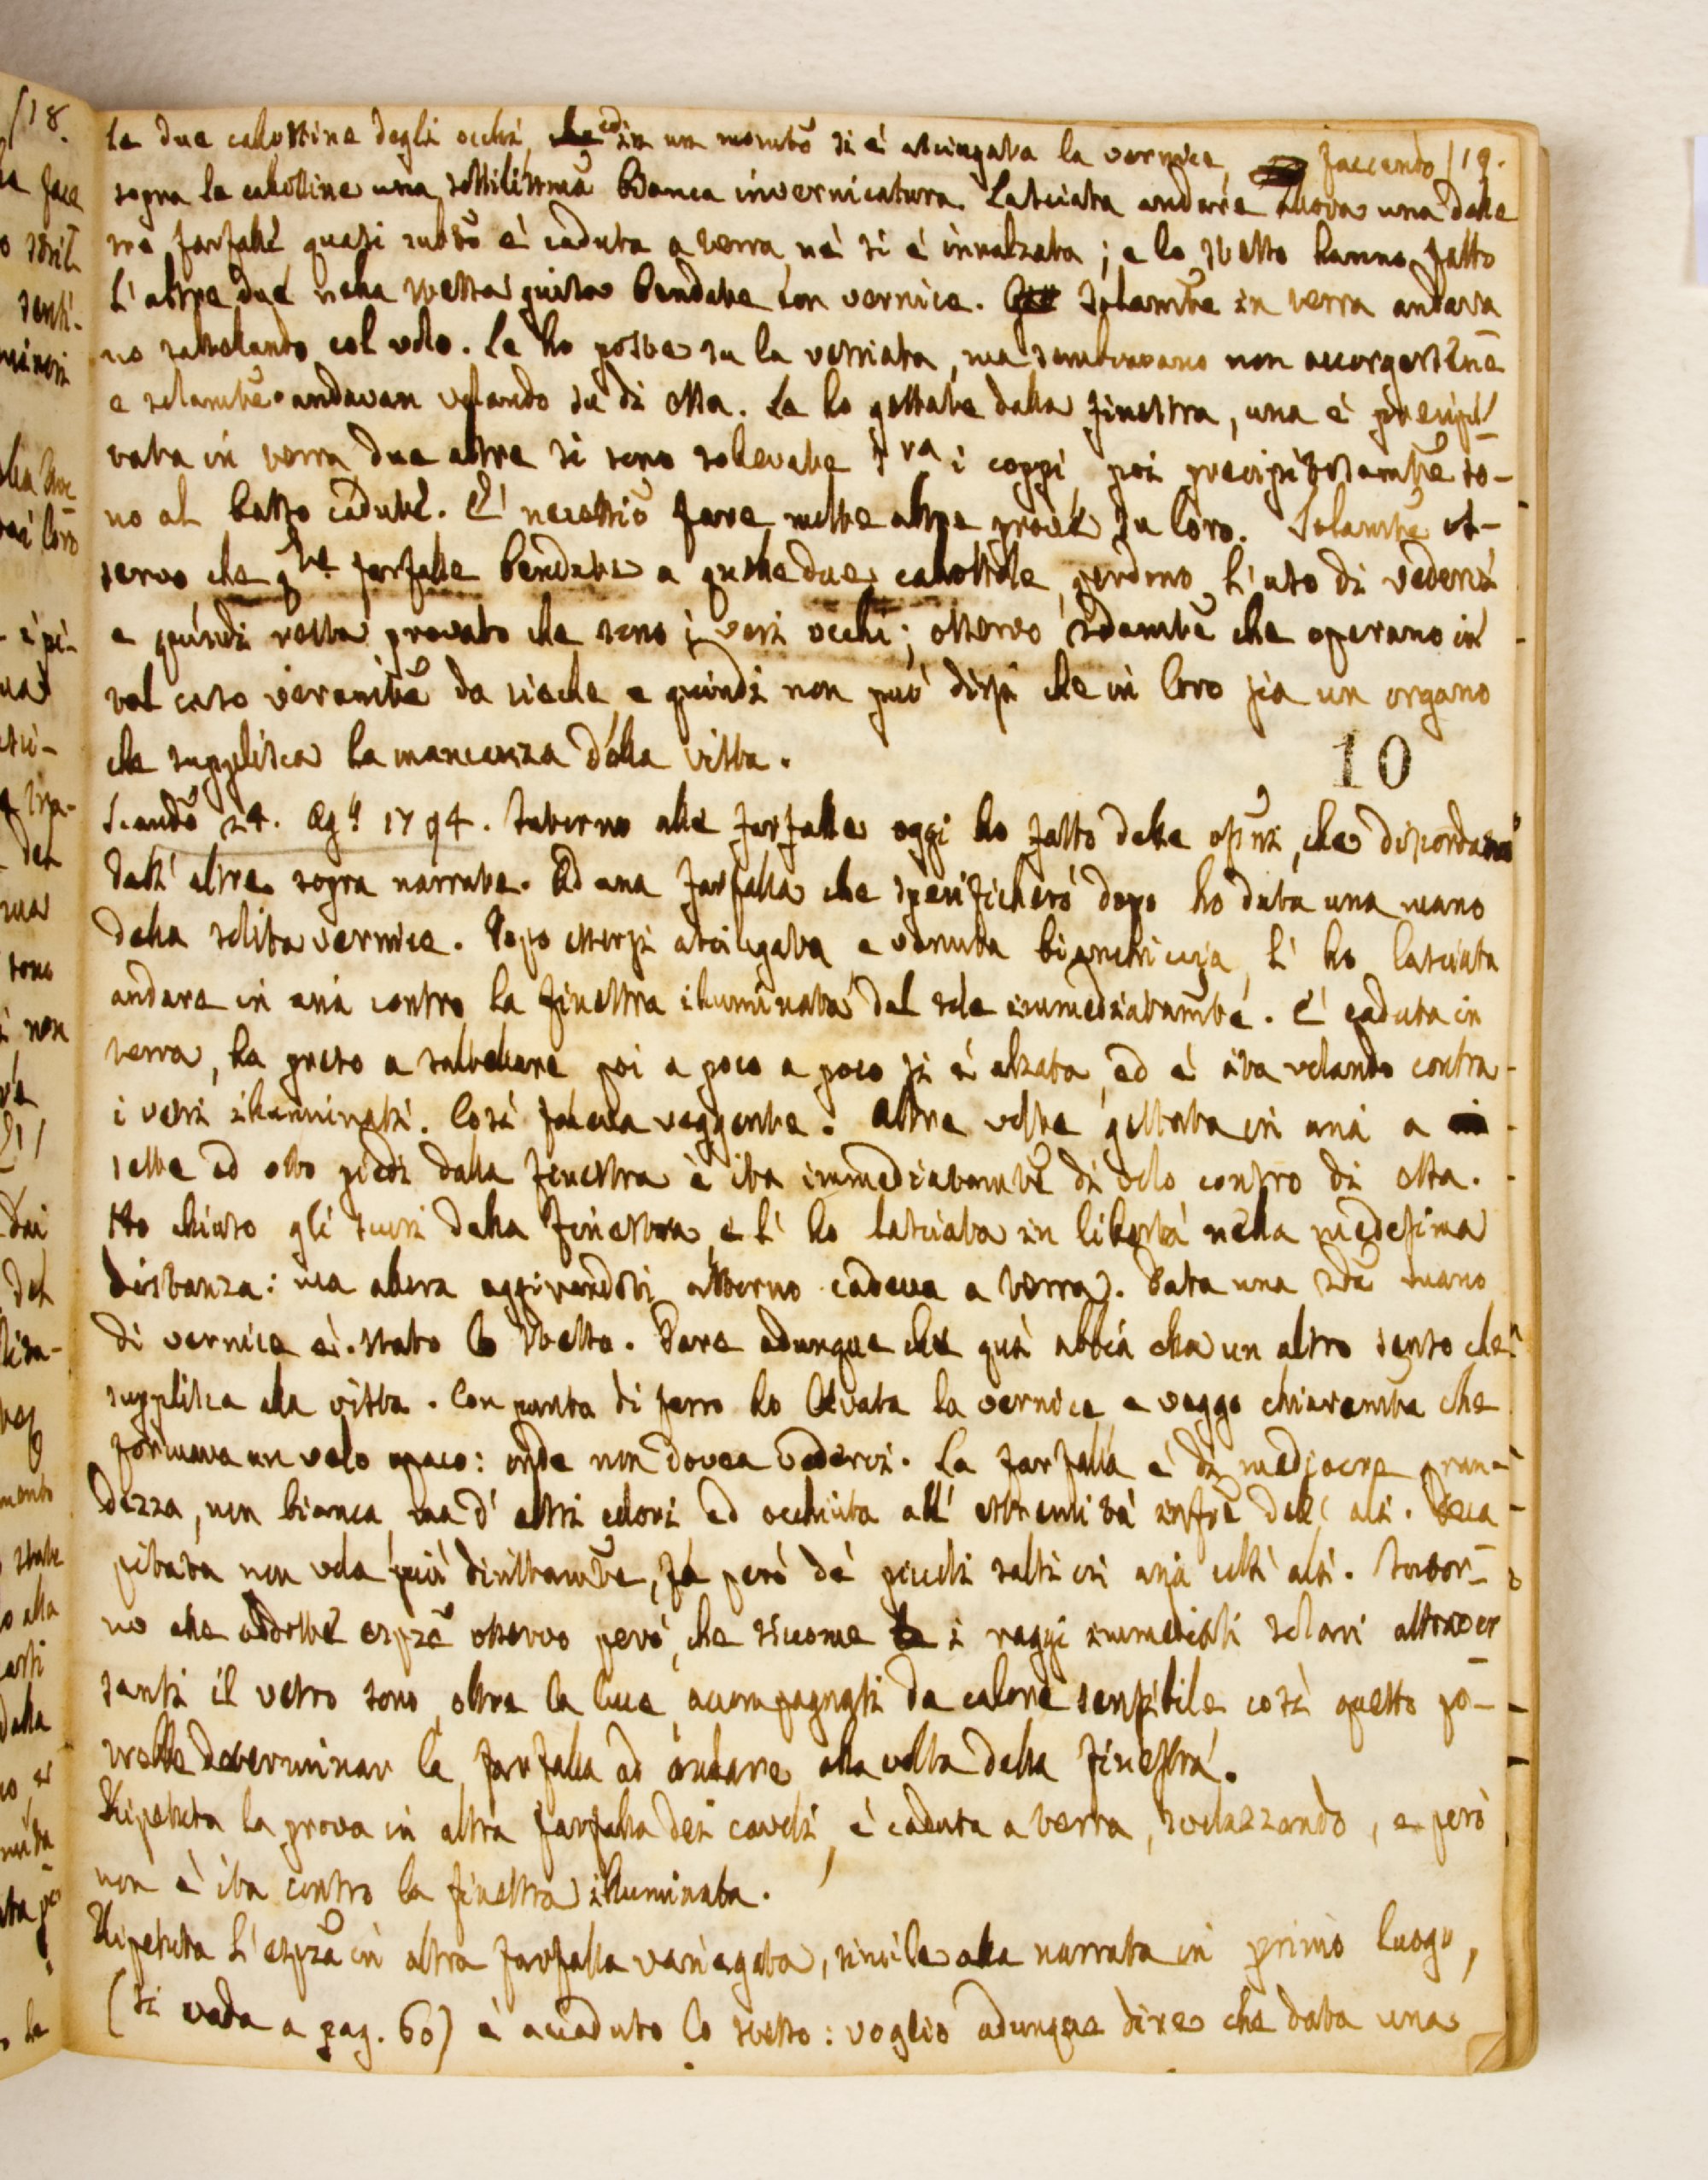 le due calottine degli occhi, ed in un momẽto si è asciugata la vernice, faccendo /19.
sopra le calottine una sottilissima bianca invernicatura. Lasciata andare allora una delle
tre farfalle quasi subito è caduta a terra, nè si è innalzata; e lo stesso hanno fatto
l'altre due nella stessa guisa bendate con vernice. Solamẽte in terra andava
no saltellando col volo. Le ho poste su la vetriata, ma sembravano non accorgersene
e solamẽte andavan volando su di essa. Le ho gettate dalla finestra, una è precipi
tata in terra due altre si sono sollevate sᵛᵃ i coppi, poi precipitosamẽte so-
no al basso cadute. E' necessãrio fare molte altre prove su loro. Solamẽte os-
servo che qᵗᵉ farfalle bendate a queste due calottole, perdono l'uso di vederci
e quindi resta provato che sono i veri occhi; osservo solamẽte che operano in
tal caso veramẽte da cieche e quindi non può dirsi che in loro sia un organo
che supplisca la mancanza della vista.
10
Scandõ 24. Agᵗᵒ 1794. Intorno alle farfalle oggi ho fatto delle ossñi, che discordano
dall' altre sopra narrate. Ad una farfalla che specificherò dopo ho data una mano
della solita vernice. Dopo essersi asciugata e venuta bianchiccia, l' ho lasciata
andare in aria contro la finestra illuminata dal sole immediatamẽte. E' caduta in
terra, ha preso a saltellare poi a poco a poco si è alzata, ed è ita volando contra
i vetri illuminati. Così faceva veggente. Altre volte gettata in aria a
sette ed otto piedi dalla finestra è ita immediatamẽte di volo contro di essa.
Ho chiuso gli scuri della finestra, e l' ho lasciata in libertà nella medesima
distanza: ma allora aggirandosi attorno cadeva a terra. Data una 2da mano
di vernice è stato lo stesso. Pare adunque che quì abbia essa un altro senso che
supplisca alla vista. Con punta di ferro ho levata la vernice, e veggo chiaramẽte che
formava un velo opaco: onde non dovea vederci. La farfalla è di mediocre gran-
dezza, non bianca, ma d' altri colori ed occhiuta all' estremità infre dell' ali. Deca
pitata non vola più dirittamẽte, fà però de' piccoli salti in aria coll' ali. Intor-
no alle addotte espze osservo però, che siccome i raggi immediati solari attraver
santi il vetro sono, oltre la luce, accompagnati da calore sensibile così questo po-
trebbe determinar la farfalla ad andare alla volta della finestra.
Ripetuta la prova in altra farfalla dei cavoli, è caduta a terra, svolazzando, e però
non è ita contro la finestra illuminata.
Ripetuta l' espza in altra farfalla variegata, simile alla narrata in primo luogo,
(si veda a pag. 60) è accaduto lo stesso: voglio adunque dire che data una